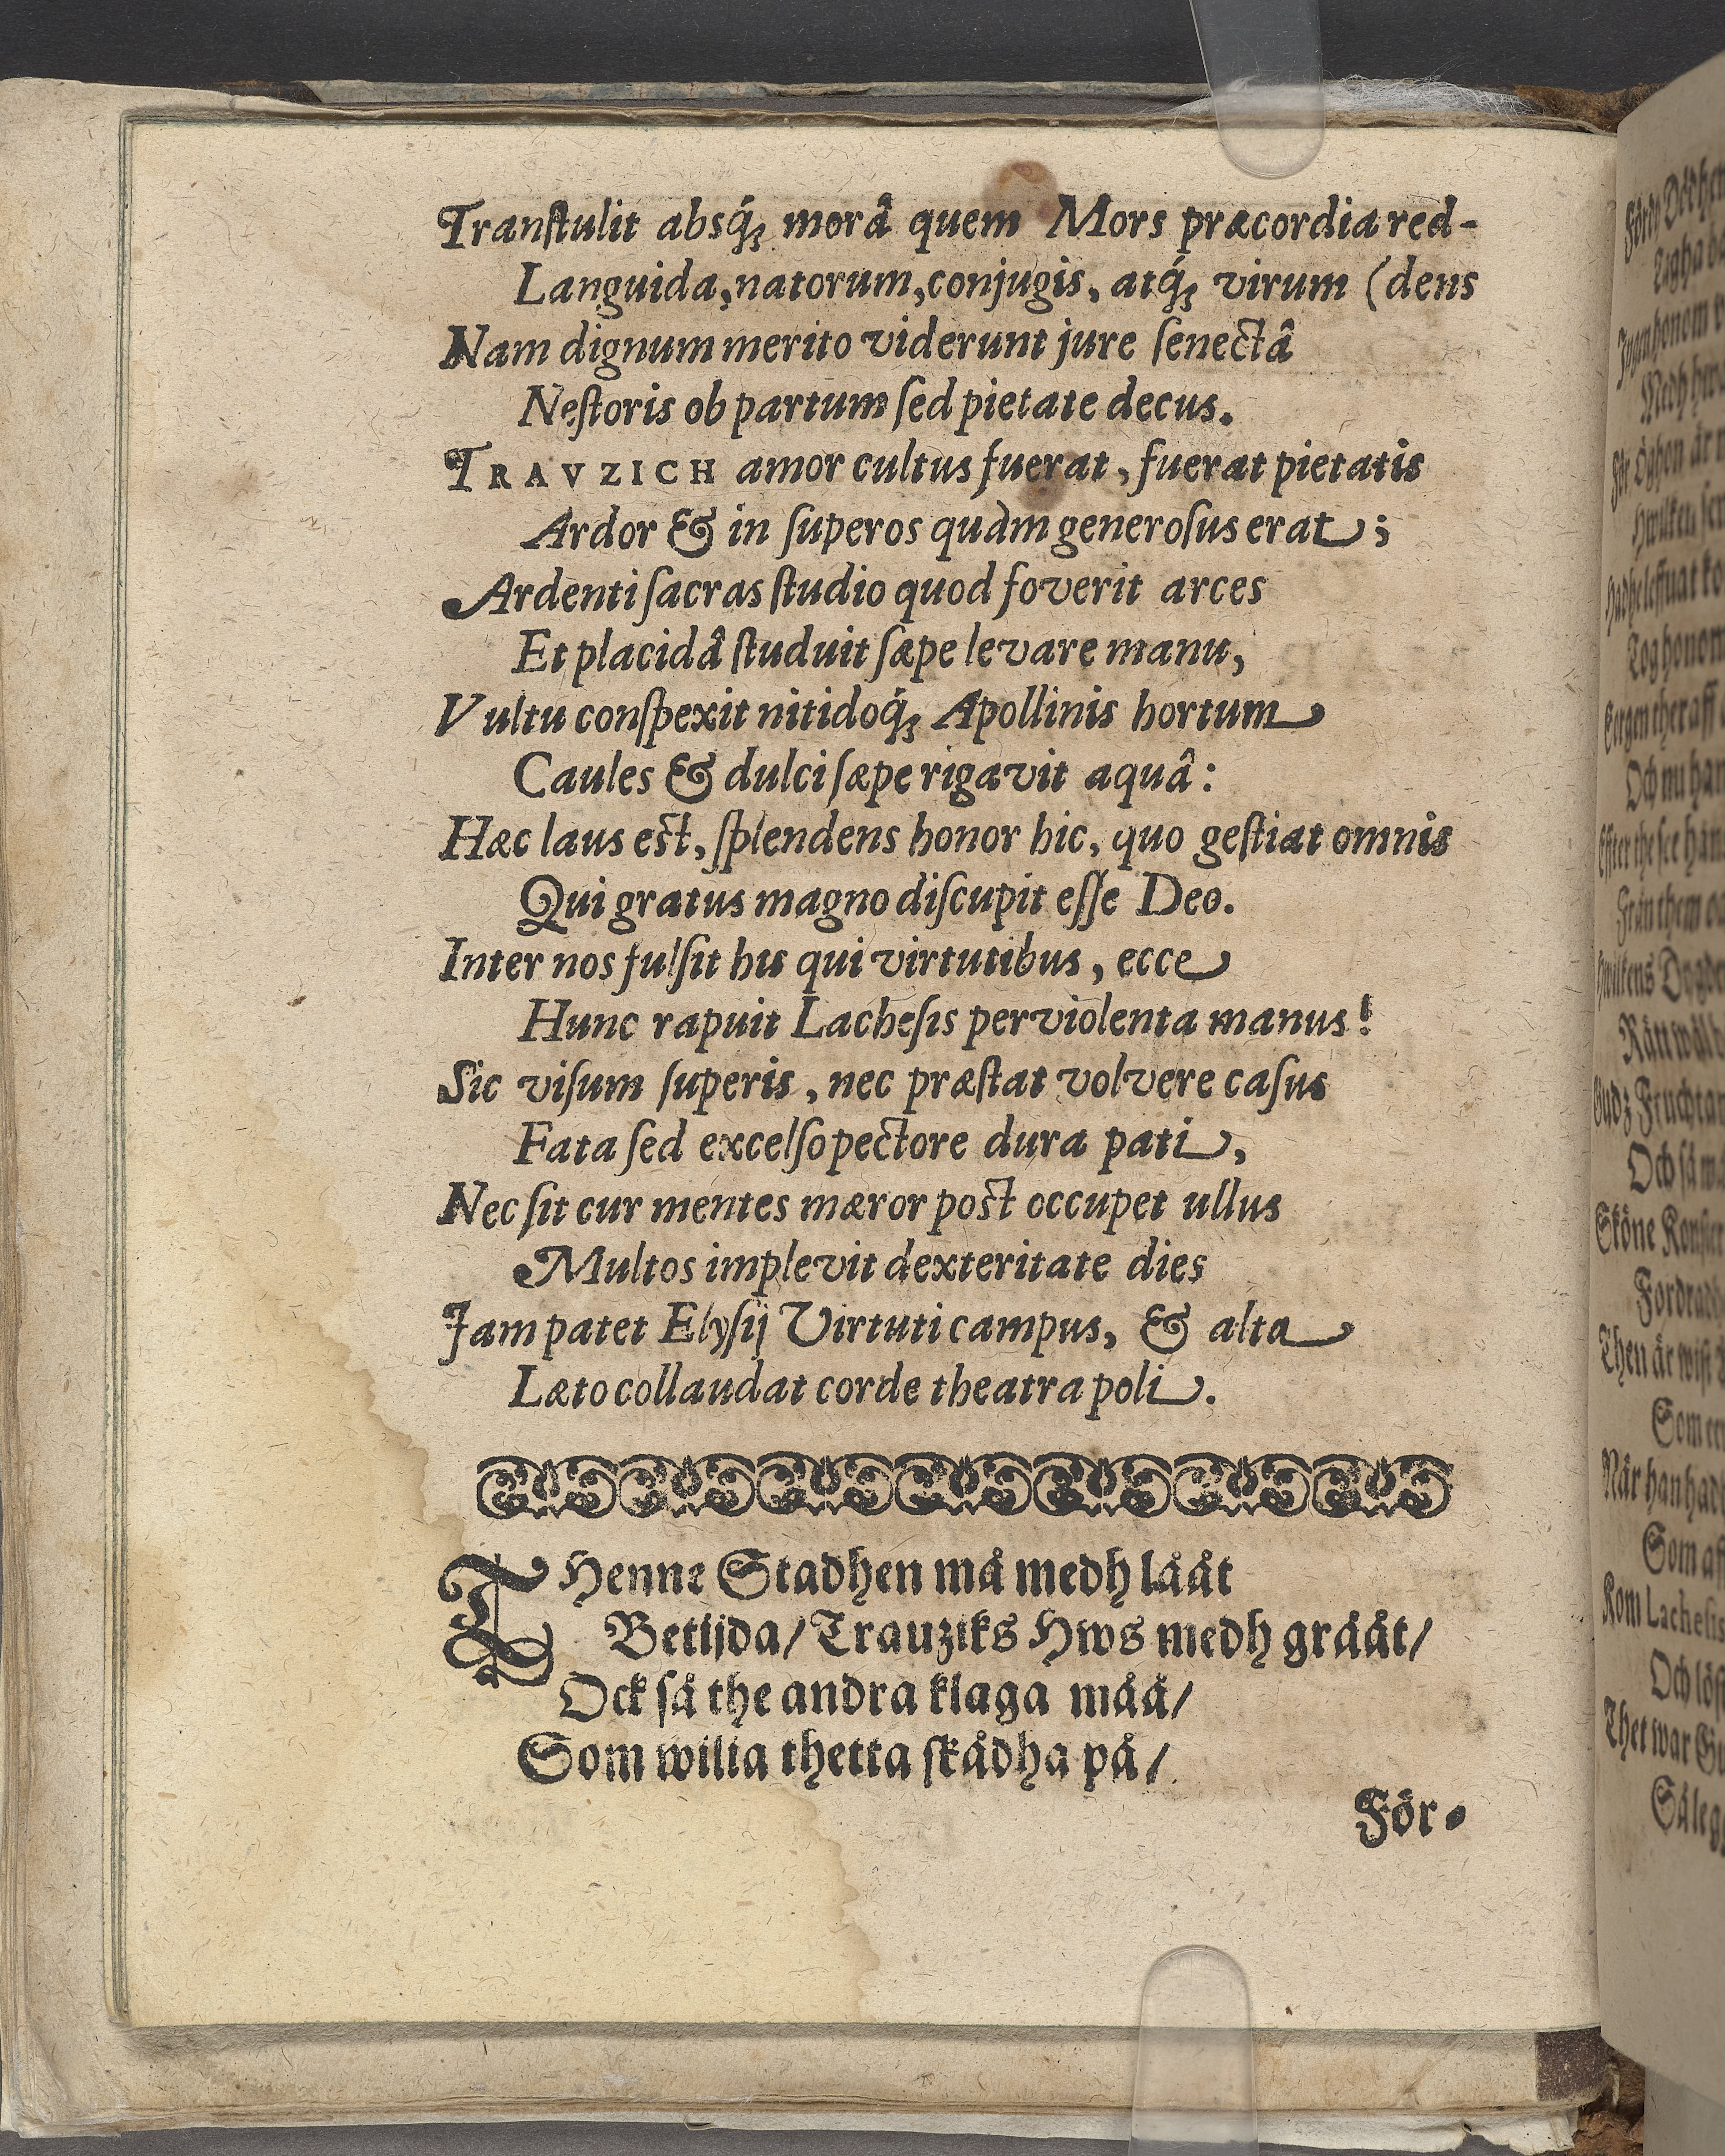 Tranſtulit absq́; morâ quem Mors præcordia red-
Languida, natorum, conjugis, atq́; virum (dens
Nam dignum merito viderunt jure ſenectâ
Neſtoris ob partum ſed pietate decus.
TRAVZICH amor cultus fuerat, fuerat pietatis
Ardor & in ſuperos quàm generoſus erat;
Ardenti ſacras ſtudio quod foverit arces
Et placidâ ſtuduit ſæpe levare manu,
Vultu conſpexit nitidoq́; Apollinis hortum
Caules & dulci ſæpe rigavit aquâ:
Hæc laus est, ſplendens honor hic, quo geſtiat omnis
Qui gratus magno diſcupit eſſe Deo.
Inter nos fulſit his qui virtutibus, ecce
Hunc rapuit Lacheſis perviolenta manus!
Sic viſum ſuperis, nec præſtat volvere caſus
Fata ſed excelſo pectore dura pati,
Nec ſit cur mentes mæror post occupet ullus
Multos implevit dexteritate dies
Jam patet Elyſij Virtuti campus, & alta
Læto collaudat corde theatra poli.
THenne Stadhen må medh lååt
Betijda/ Trauziks Hws medh grååt/
Ock ſå the andra klaga måå/
Som wilia thetta ſkådha på/
För-